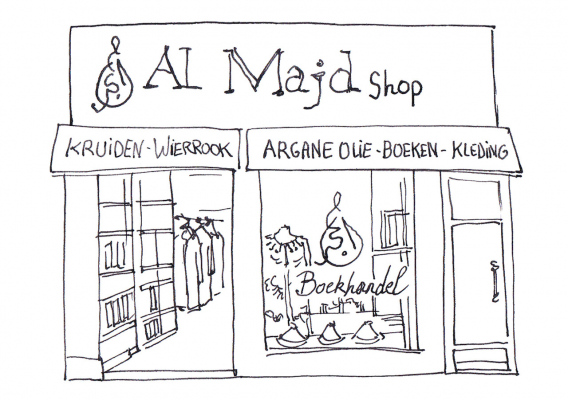 Al Majd Shop
KRUIDEN - WIERROOK
ARGANE OLIE - BOEKEN - KLEDING
Boekhandel